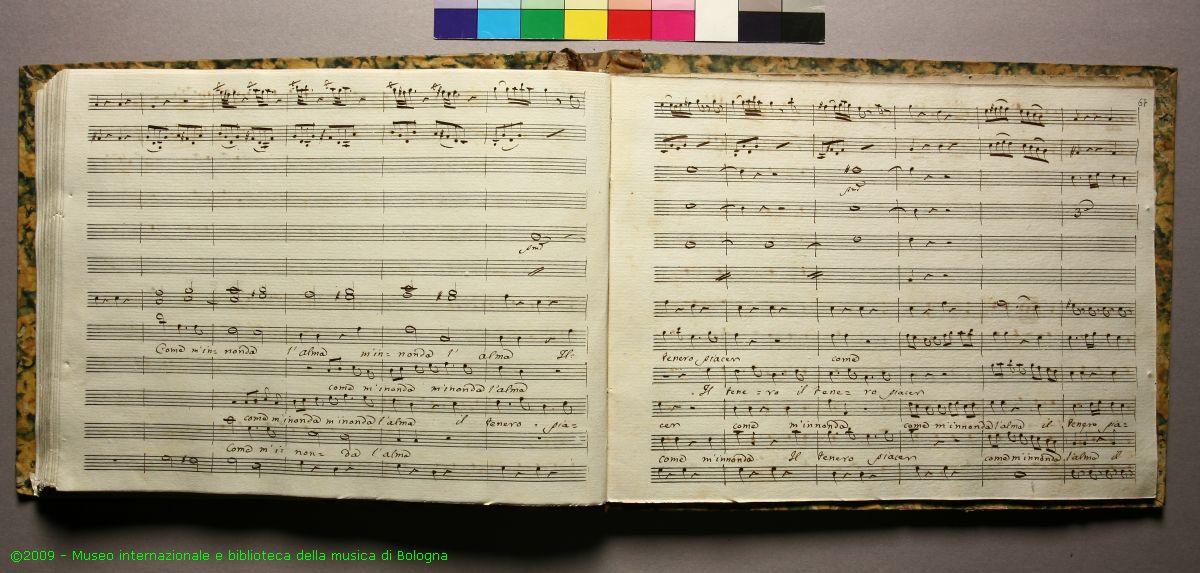 Come m'in= nonda l'alma m'in= nonda l' alma Il
come m'inonda m'inonda l'alma
come m'inonda m'inonda l'alma il tenero . pia=
Come m'i= non= da l'alma
67
tenero piacer come
Il tene = ro il tene = ro piacer
cer come m'innonda come m'innonda l'alma il tenero pia=
come m'innonda Il tenero piacer come m'innonda l'alma il
©2009 - Museo internazionale e biblioteca della musica di Bologna